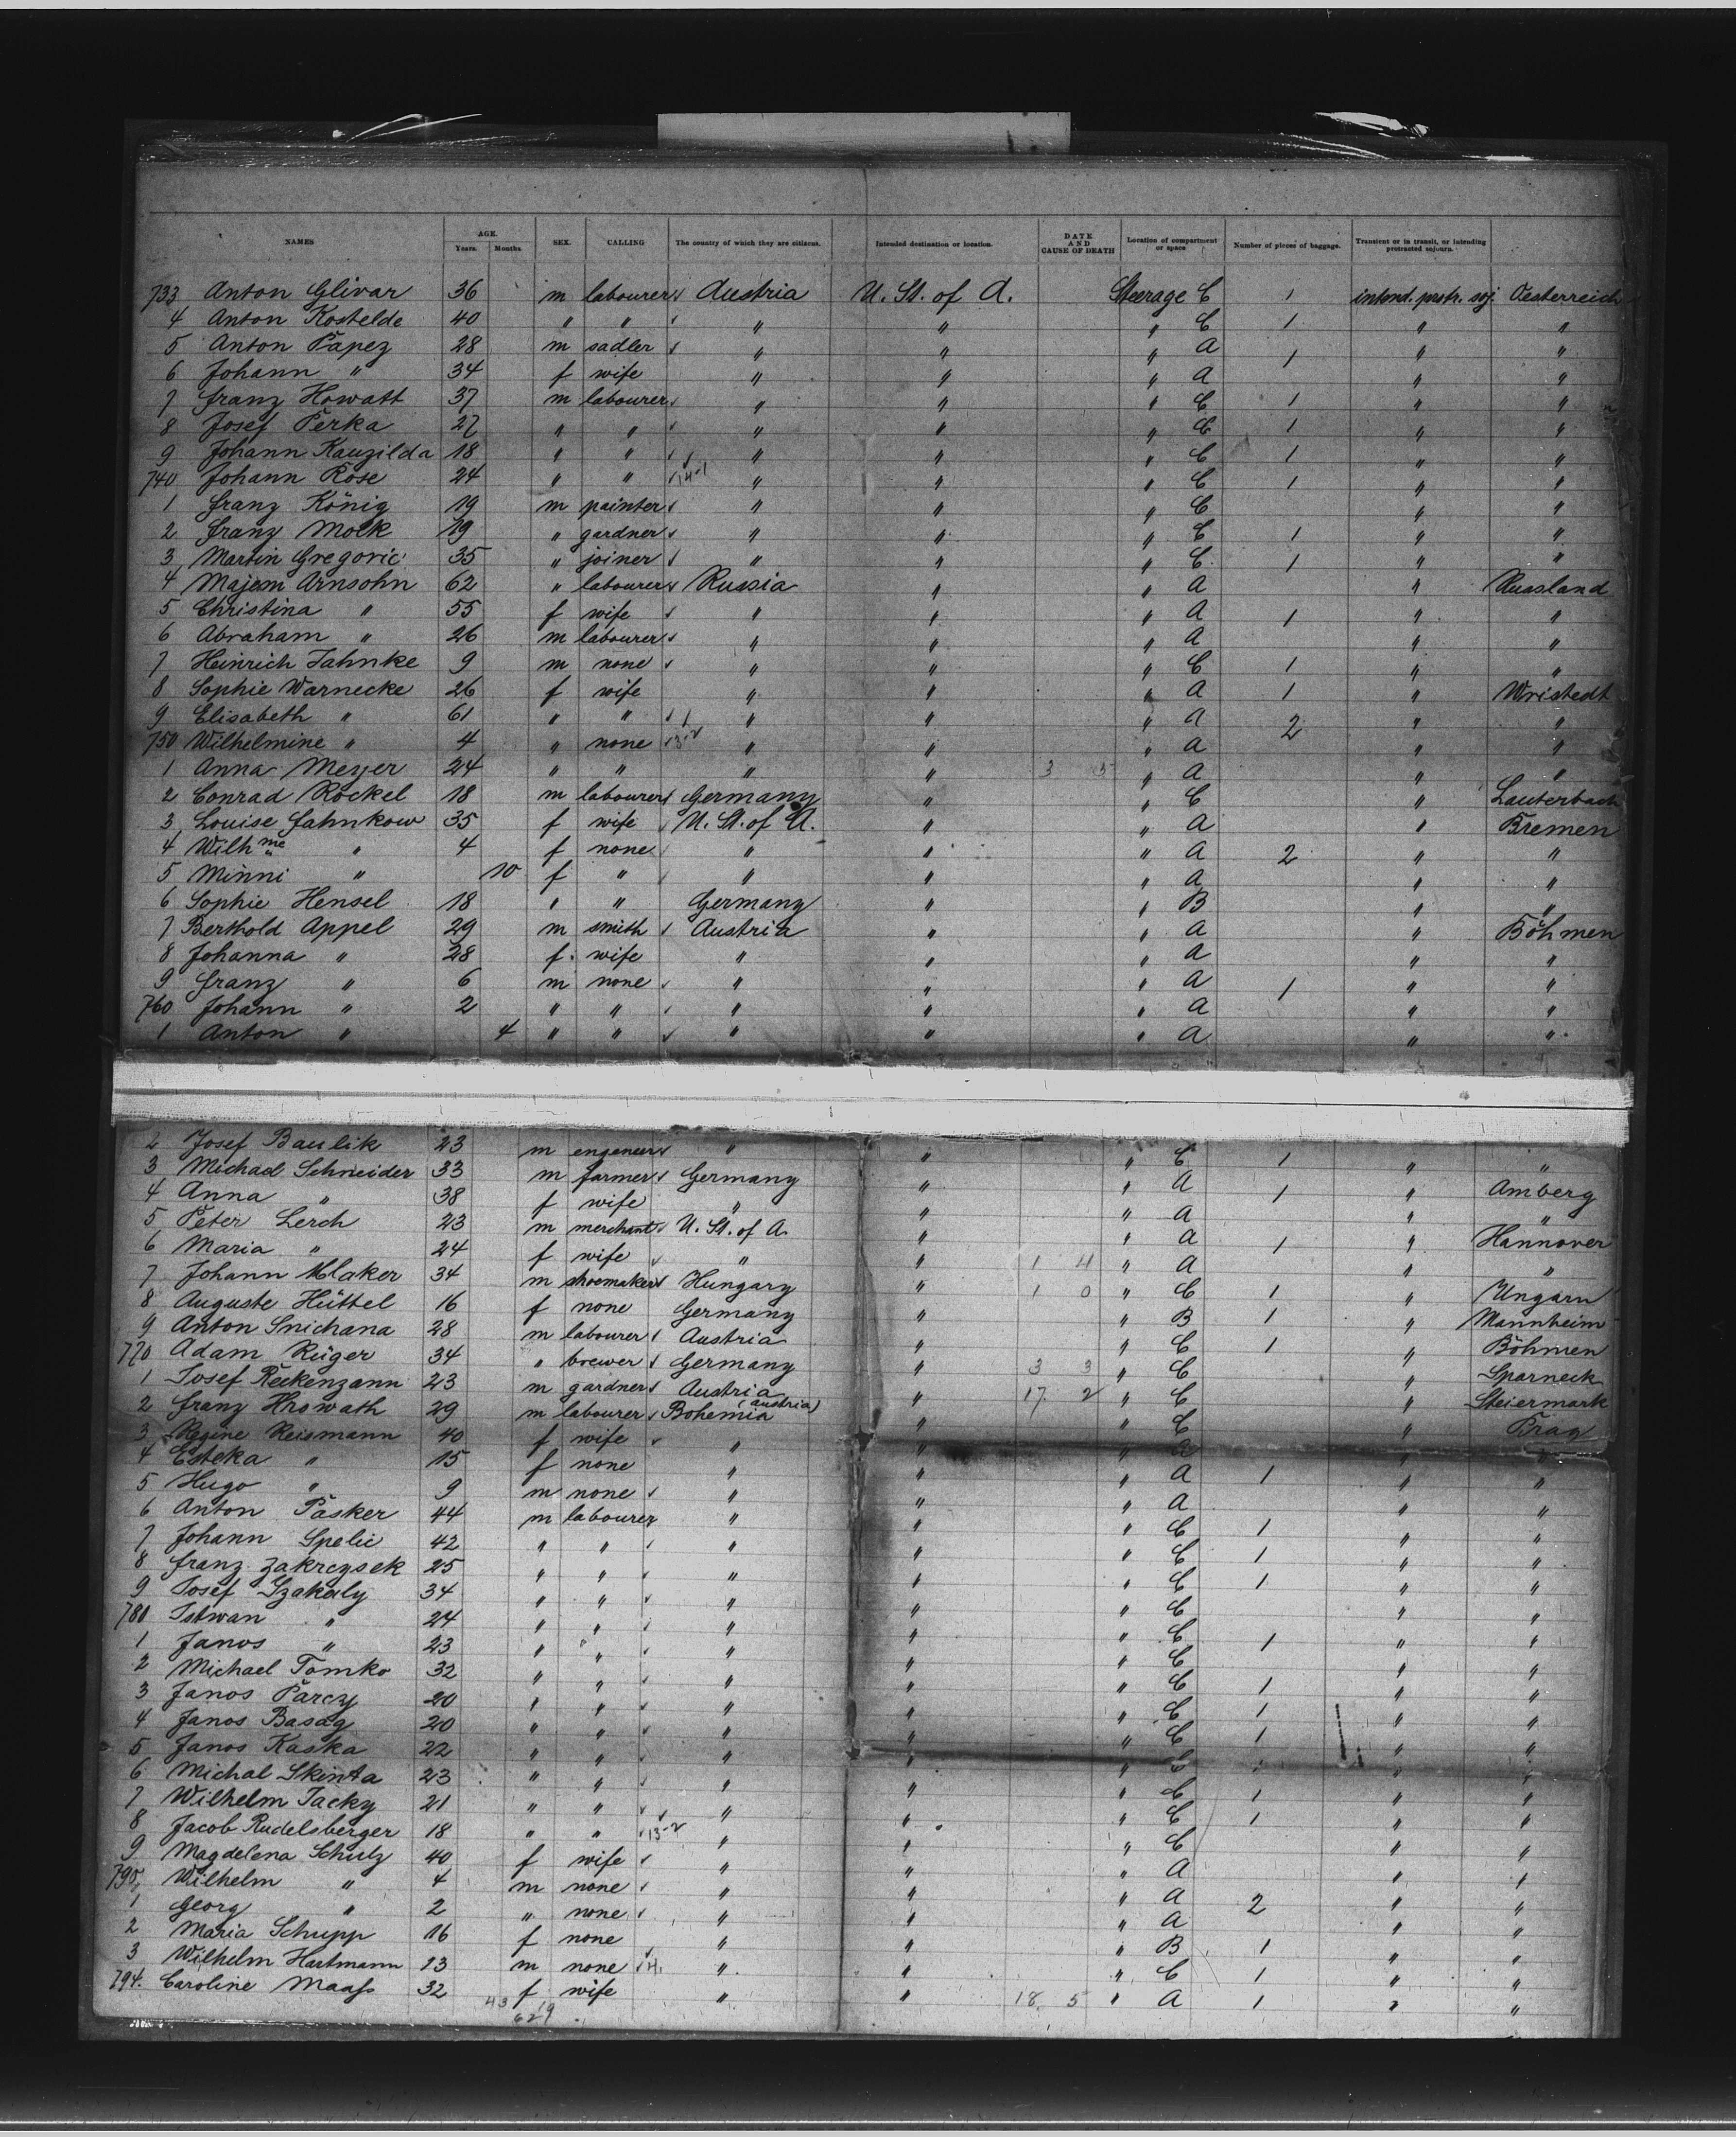 NAMES AGE. Years. Months. SEX. CALLING The country of which they are citizens. Intended destination or location. DATE AND CAUSE OF DEATH Location of compartment or space Number of pieces of baggage. Transient or in transit, or intending protracted sojourn.
733 Anton Glivar 36 m labourer Austria U. St. of A. Steerage C 1 intend. protr. soj. Oesterreich
4 Anton Kostelde 40 " " " " " C 1 " "
5 Anton Papez 28 m sadler " " " A 1 " "
6 Johann " 34 f wife " " " A " "
7 Franz Howatt 37 m labourer " " " C 1 " "
8 Josef Perka 27 " " " " " C 1 " "
9 Johann Kauzilda 18 " " " " " C 1 " "
740 Johann Rose 24 " " 14-1 " " " C 1 " "
1 Franz König 19 m painter " " " C " "
2 Franz Mock 19 " gardner " " " C 1 " "
3 Martin Gregoric 35 " joiner " " " C 1 " "
4 Majem Arnsohn 62 " labourer Russia " " A " Russland
5 Christina " 55 f wife " " " A 1 " "
6 Abraham " 26 m labourer " " " A " "
7 Heinrich Jahnke 9 m none " " " C 1 " "
8 Sophie Warnecke 26 f wife " " " A 1 " Wristedt
9 Elisabeth " 61 " " " " " A 2 " "
750 Wilhelmine " 4 " none 3-2 " " " A " "
1 Anna Meyer 24 " " " " 3 5 " A " "
2 Conrad Röckel 18 m labourer Germany " " C " Lauterbach
3 Louise Jahnkow 35 f wife U. St. of A. " " A " Bremen
4 Wilhme " 4 f none " " " A 2 " "
5 Minni " 10 f " " " " A " "
6 Sophie Hensel 18 " " Germany " " B " "
7 Berthold Appel 29 m smith Austria " " A " Böhmen
8 Johanna " 28 f. wife " " " A " "
9 Franz " 6 m none " " " A 1 " "
760 Johann " 2 " " " " " A " "
1 Anton " 4 " " " " " A " "
2 Josef Baulik 23 m engeneer " " " C 1 " "
3 Michael Schneider 33 m farmer Germany " " A 1 " Amberg
4 Anna " 38 f wife " " " A " "
5 Peter Lerch 23 m merchant U. St. of A. " " A 1 " Hannover
6 Maria " 24 f wife " " 1 4 " A " "
7 Johann Mlaker 34 m shoemaker Hungary " 1 0 " C 1 " Ungarn
8 Auguste Hüttel 16 f none Germany " " B 1 " Mannheim
9 Anton Snichana 28 m labourer Austria " " C 1 " Böhmen
770 Adam Rüger 34 " brewer Germany " 3 3 " C " Sparneck
1 Josef Reckenzann 23 m gardner Austria " 17 2 " C " Steiermark
2 Franz Hrowath 29 m labourer Bohemia (Austria) " " C " Prag
3 Regine Reismann 40 f wife " " " A " "
4 Esteka " 15 f none " " " A 1 " "
5 Hugo " 9 m none " " " A " "
6 Anton Pasker 44 m labourer " " " C 1 " "
7 Johann Spelic 42 " " " " " C 1 " "
8 Franz Zakrczsek 25 " " " " " C 1 " "
9 Josef Szakaly 34 " " " " " C " "
780 Istwan " 24 " " " " " C 1 " "
1 Janos " 23 " " " " " C " "
2 Michael Tomko 32 " " " " " C 1 " "
3 Janos Parczy 20 " " " " " C 1 " "
4 Janos Basag 20 " " " " " C 1 " "
5 Janos Kaska 22 " " " " " C " "
6 Michal Skinta 23 " " " " " C 1 " "
7 Wilhelm Jacky 21 " " " " " C 1 " "
8 Jacob Rudelsberger 18 " " 13-2 " " " C " "
9 Magdelena Schulz 40 f wife " " " A " "
790 Wilhelm " 4 m none " " " A 2 " "
1 Georg " 2 " none " " " A " "
2 Maria Schupp 16 f none " " " B 1 " "
3 Wilhelm Hartmann 13 m none 4. " " " C 1 " "
794. Caroline Maass 32 f wife " " 18 5 " A 1 " "
43 19
62